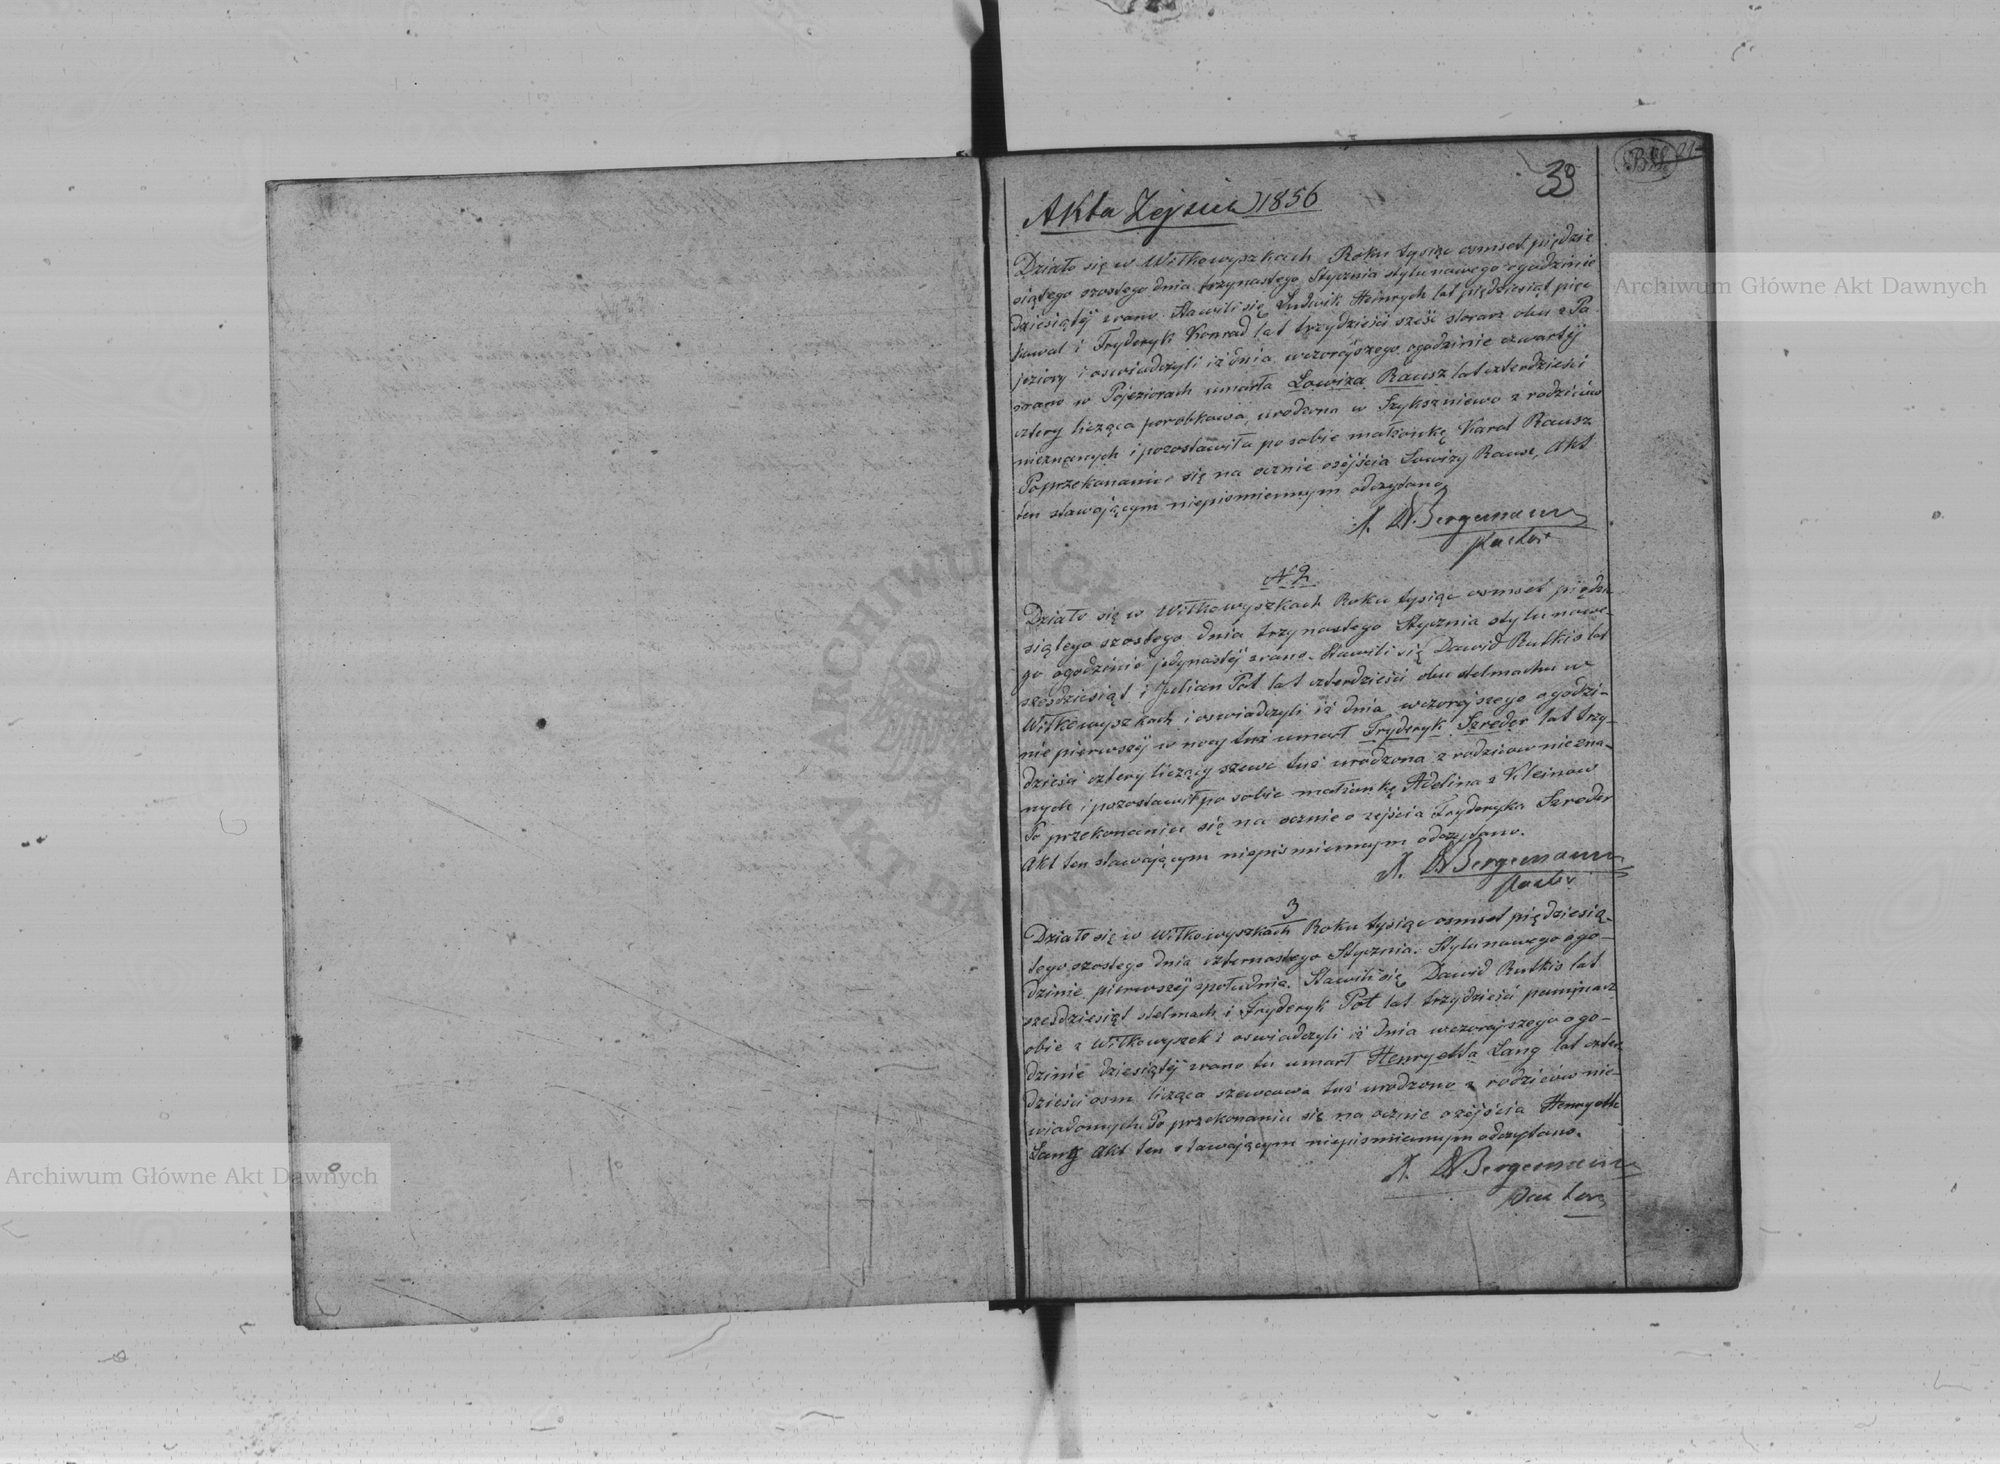 39
Akta Zejścia 1856
Działo się w Wiłkowyszkach Roku tysiąc osmset piędzie
siątego szostego dnia trzynastego Stycznia stylu nowego ogodzinie
dziesiątéj zrano Stawili się Ludwik Heinrych lat pięcdziesiąt pięc
i Fryderyk Konrad lat trzydzieści sześć stolarz obu z Pa
jeziory i oswiadczyli iż dnia wczorajszego ogodzinie czwartéj
zrano w Pojeziorach umarła Lowiza Rausz lat czterdzieści
cztery licząca porobkowa urodzona w Szykszniewo z rodziców
nieznanych i pozostawiła po sobie małżonkę Karol Rausz
Poprzekonaniu się na ocznie ozéjścia Lowizy Rausz, Akt
ten stawającym niepismiennym odczytano
A. W Bergemann
Pastor
N 2
Działo się w Wiłkowyszkach Roku tysiąc osmset piędzie
siątego szostego dnia trzynastego Stycznia stylu nowe-
go ogodzinie jedynastéj zrano. Stawili się Dawid Rutkis lat
sześdziesiąt i Julian Pot lat czterdzieści obu stelmachu w
Wiłkowyszkach i oswiadczyli iż dnia wczorajszego ogodzi-
nie pierwszéj w nocy tuż umarł Fryderyk Szreder lat trzy-
dzieści cztery liczący szewc tuż urodzona z rodziców niezna-
nych i pozostawił po sobie małżonkę Adelina z Kleinow
Po przekonaniu się na ocznie o zejścia Fryderyka Szreder
Akt ten stawającym niepismiennym odczytano.
A. W Bergemann
Pastor
3
Działo się w Wiłkowyszkach Roku tysiąc osmset piędziesią-
tego szostego dnia czternastego Stycznia. Stylu nowego ogo-
dzinie pierwszéj zpołudnia. Stawili się Dawid Rutkis lat
sześdziesiąt stelmach i Fryderyk Pot lat trzydzieści
obie z Wiłkowyszek i oswiadczyli iż dnia wczorajszego ogo-
dzinie dziesiątéj zrano tu umarł Henryetta Lang lat czter
dzieści osm licząca szewcowa tuż urodzono z rodziców nie-
wiadomych. Po przekonaniu się na ocznie ozéjścia Henryetti
Lang Akt ten stawającym niepismiennym odczytano.
A. W Bergemann
Pastor
Archiwum Główne Akt Dawnych
Archiwum Główne Akt Dawnych